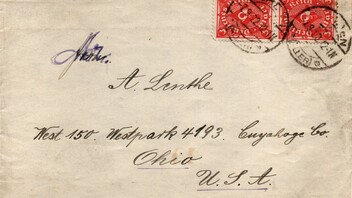 A. Lenthe
West 150. Westpark 4193. Cuyahoge Co.
Ohio
U. S. A.